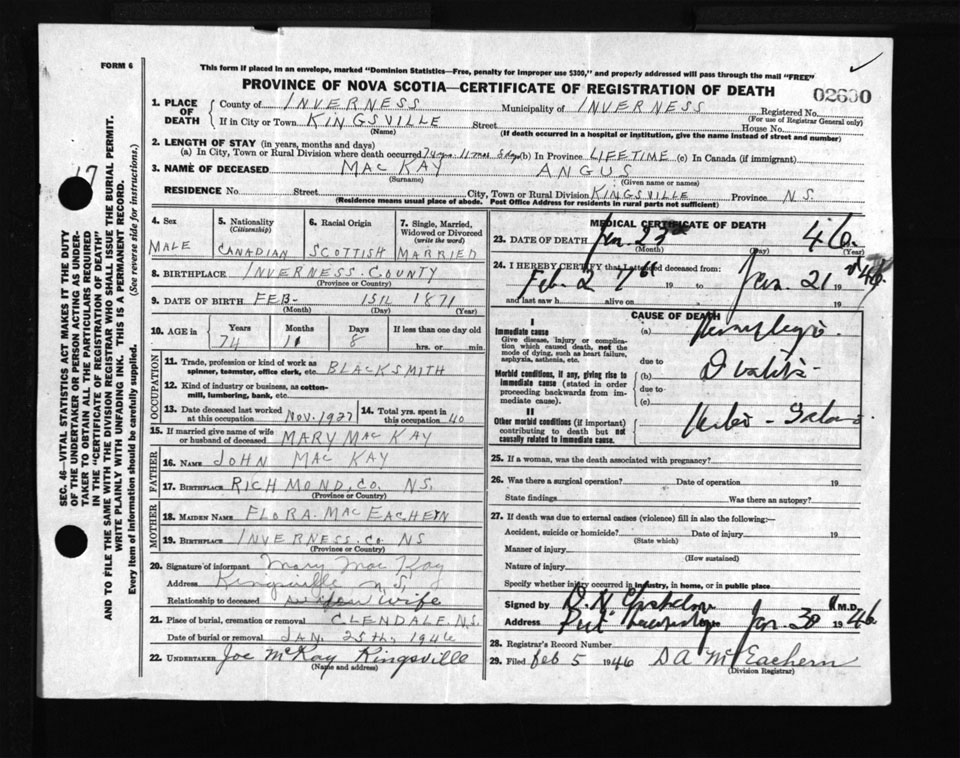 FORM 6
This form if placed in an envelope, marked "Dominion Statistics—Free, penalty for improper use $300," and properly addressed will pass through the mail "FREE"
PROVINCE OF NOVA SCOTIA—CERTIFICATE OF REGISTRATION OF DEATH
SEC. 46—VITAL STATISTICS ACT MAKES IT THE DUTY
OF THE UNDERTAKER OR PERSON ACTING AS UNDER-
TAKER TO OBTAIN ALL THE PARTICULARS REQUIRED
IN THE "CERTIFICATE OF REGISTRATION OF DEATH"
AND TO FILE THE SAME WITH THE DIVISION REGISTRAR WHO SHALL ISSUE THE BURIAL PERMIT.
WRITE PLAINLY WITH UNFADING INK. THIS IS A PERMANENT RECORD.
Every item of information should be carefully supplied. (See reverse side for instructions.)
1. PLACE OF DEATH County of INVERNESS Municipality of INVERNESS Registered No.
(For use of Registrar General only)
If in City or Town KINGSVILLE Street House No.
(Name) (If death occurred in a hospital or institution, give the name instead of street and number)
2. LENGTH OF STAY (in years, months and days)
(a) In City, Town or Rural Division where death occurred 74 yrs. 11 mos 8 dys (b) In Province LIFETIME (c) In Canada (if immigrant)
3. NAME OF DECEASED MAC KAY ANGUS
(Surname) (Given name or names)
RESIDENCE No Street City, Town or Rural Division KINGSVILLE Province N.S.
(Residence means usual place of abode. Post Office Address for residents in rural parts not sufficient)
4. Sex 5. Nationality (Citizenship) 6. Racial Origin 7. Single, Married, Widowed or Divorced (write the word)
MALE CANADIAN SCOTTISH MARRIED
8. BIRTHPLACE INVERNESS. COUNTY
(Province or Country)
9. DATE OF BIRTH FEB- 15th 1871
(Month) (Day) (Year)
10. AGE in Years Months Days If less than one day old
74 11 8 hrs. or min.
OCCUPATION
11. Trade, profession or kind of work as spinner, teamster, office clerk, etc. BLACKSMITH
12. Kind of industry or business, as cotton-mill, lumbering, bank, etc.
13. Date deceased last worked at this occupation NOV. 1927 14. Total yrs. spent in this occupation 40
15. If married give name of wife or husband of deceased MARY MAC KAY
FATHER
16. NAME JOHN MAC KAY
17. BIRTHPLACE RICHMOND. CO. NS.
(Province or Country)
MOTHER
18. MAIDEN NAME FLORA. MAC EACHERN
19. BIRTHPLACE INVERNESS. CO NS
(Province or Country)
20. Signature of informant Mary Mac Kay
Address Kingsville N.S.
Relationship to deceased Wife
21. Place of burial, cremation or removal GLENDALE, N.S.
Date of burial or removal JAN. 25th, 1946
22. UNDERTAKER Joe McKay Kingsville
(Name and address)
MEDICAL CERTIFICATE OF DEATH
23. DATE OF DEATH Jan. 23rd 46.
(Month) (Day) (Year)
24. I HEREBY CERTIFY that I attended deceased from:
Feb. 19 to Jan. 21 19 46
and last saw h alive on 19
CAUSE OF DEATH
I
Immediate cause
Give disease, injury or complication which caused death, not the mode of dying, such as heart failure, asphyxia, asthenia, etc.
(a) Hemiplegia
due to
Morbid conditions, if any, giving rise to immediate cause (stated in order proceeding backwards from immediate cause).
(b)
due to
(c)
II
Other morbid conditions (if important) contributing to death but not causally related to immediate cause.
25. If a woman, was the death associated with pregnancy?
26. Was there a surgical operation? Date of operation 19
State findings Was there an autopsy?
27. If death was due to external causes (violence) fill in also the following:—
Accident, suicide or homicide? Date of injury 19
(State which)
Manner of injury
(How sustained)
Nature of injury
Specify whether injury occurred in industry, in home, or in public place
Signed by M.D.
Address Port Jan. 30 1946
28. Registrar's Record Number
29. Filed Feb 5 1946 D A McEachern
(Division Registrar)